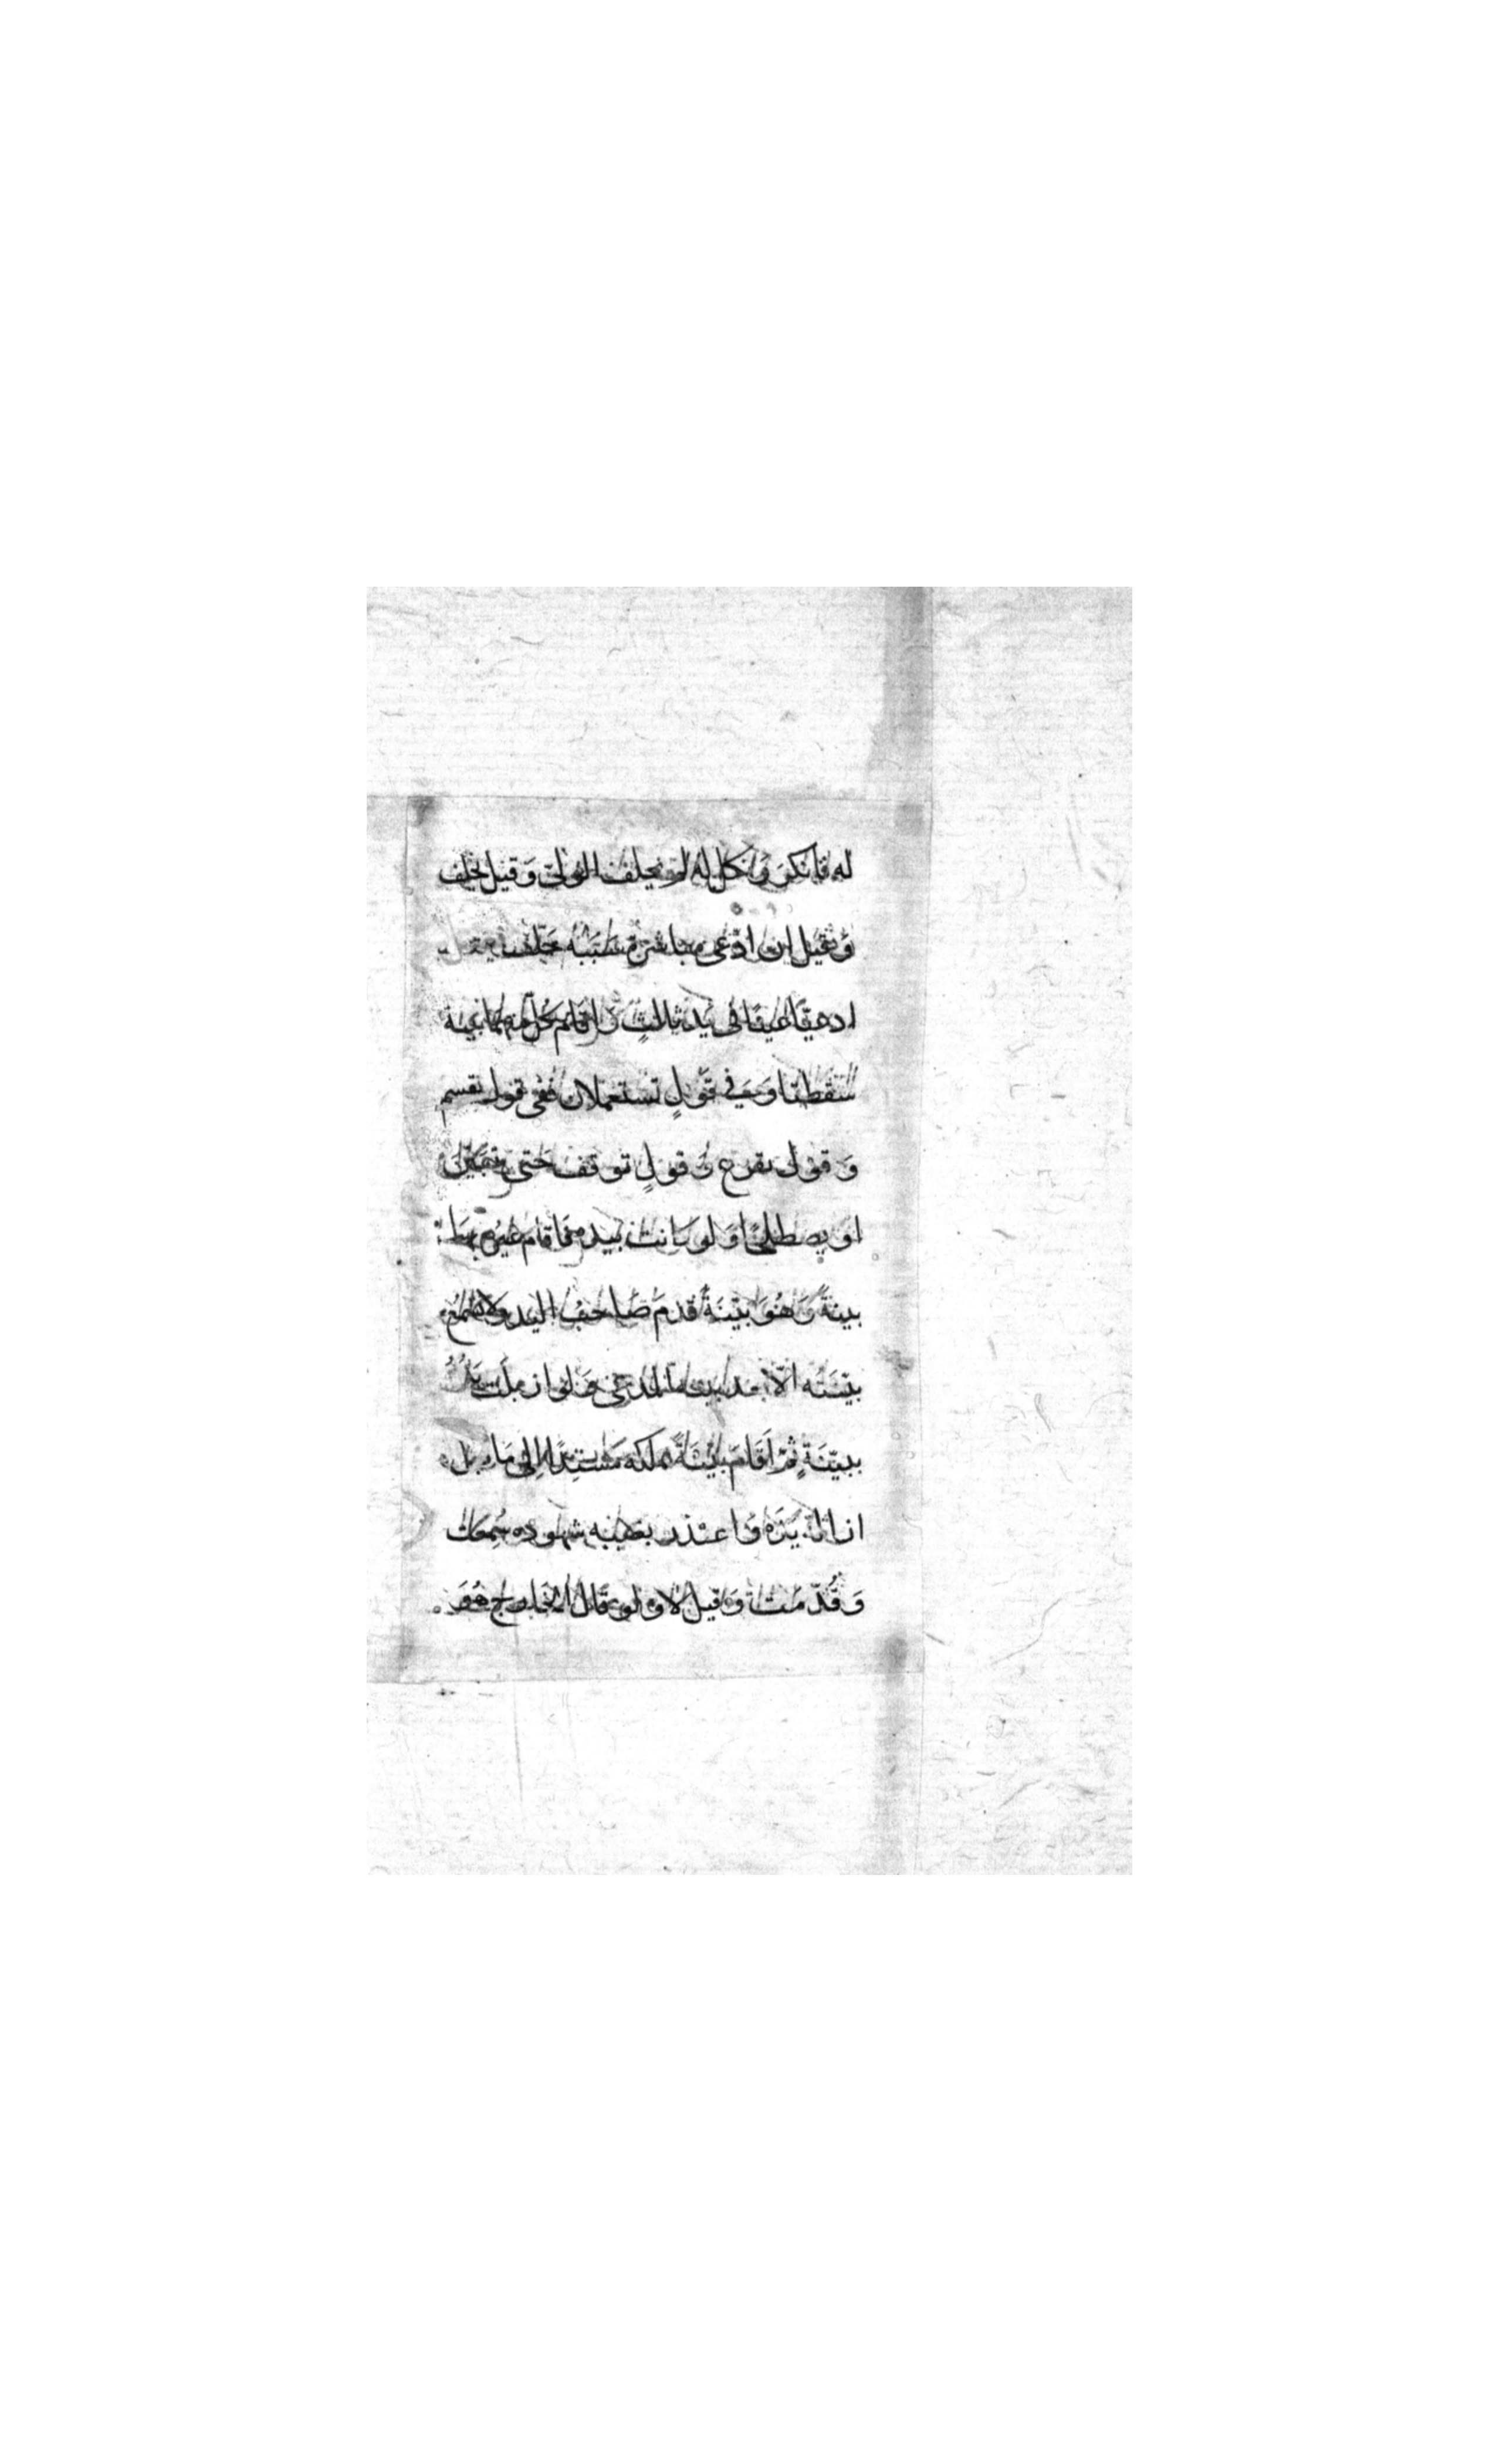 له فانكر ونكل له لم يحلف الولي وقيل يحلف
وقيل ان ادعى مباشرة سببه حلف
ادعيا عينا في يد ثالث واقام كل منهما بينة
سقطتا وفي قول تستعملان ففي قول تقسم
وقول يقرع وقول توقف حتى يتبين
او يصطلحا ولو كانت بيده فاقام غيره بها
بينة وهو بينة قدم صاحب اليد ولا تسمع
بينته الا بعد بينة المدعي ولو ازيلت يده
ببينة ثم اقام بينة بملكه مستندا الى ما قبل
ازالة يده واعتذر بغيبة شهوده سمعت
وقدمت وقيل لا ولو قال الخارج هو